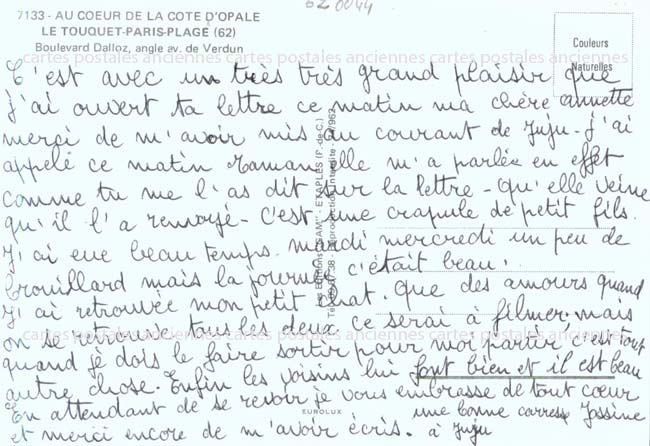 620044
7133 - AU COEUR DE LA COTE D'OPALE
LE TOUQUET-PARIS-PLAGE (62)
Boulevard Dalloz, angle av. de Verdun
Couleurs
Naturelles
cartes postales anciennes cartes postales anciennes cartes postales anciennes
C'est avec un très très grand plaisir que
j'ai ouvert ta lettre ce matin ma chère annette
merci de m'avoir mis au courant de Juju - J'ai
appelé ce matin Maman elle m'a parlée en effet
comme tu me l'as dit sur la lettre - qu'elle veine
qu'il l'a renvoyé - C'est une crapule de petit fils.
J'ai eue beau temps. mardi mercredi un peu de
brouillard mais la journée c'était beau.
J'ai retrouvée mon petit chat. que des amours quand
on se retrouve tous les deux. ce serai à filmer. mais
cartes postales anciennes cartes postales anciennes cartes postales anciennes
quand je dois le faire sortir pour moi partir, c'est tout
autre chose. Enfin les voisins lui font bien et il est beau
En attendant de se revoir je vous embrasse de tout coeur
et merci encore de m'avoir écris.
une bonne caresse Jossine
à Juju
EUROLUX
Les Editions "GAM" - ETAPLES (P.-de-C.)
Reproduction Interdite